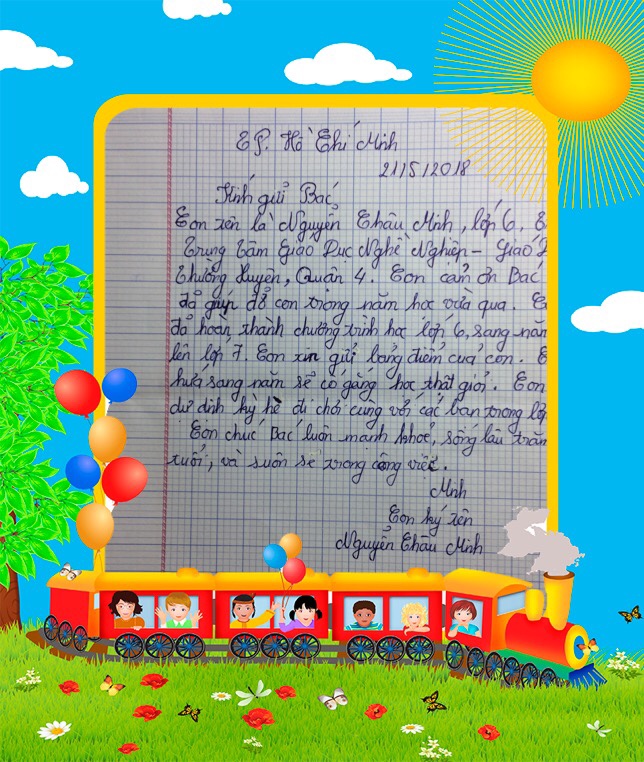 TP. Hồ Chí Minh
21/5/2018
Kính gửi Bác
Con tên là Nguyễn Châu Minh, lớp 6,
Trung Tâm Giáo Dục Nghề Nghiệp - Giáo
Thường Xuyên, Quận 4. Con cảm ơn Bác
đã giúp đỡ con trong năm học vừa qua.
đã hoàn thành chương trình học lớp 6, sang năm
lên lớp 7. Con xin gửi bảng điểm của con.
hứa sang năm sẽ cố gắng học thật giỏi. Con
dự định kỳ hè đi chơi cùng với các bạn trong lớp
Con chúc Bác luôn mạnh khoẻ, sống lâu trăm
tuổi, và suôn sẻ trong công việc.
Minh
Con ký tên
Nguyễn Châu Minh